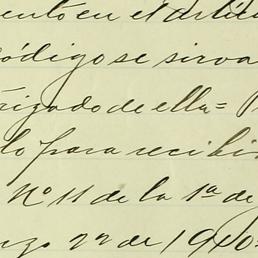 ento en el artícu
código se sirva
rizado de ella=
do para recibi
Nº 11 de la 1ª de
nzo 22 de 1910=